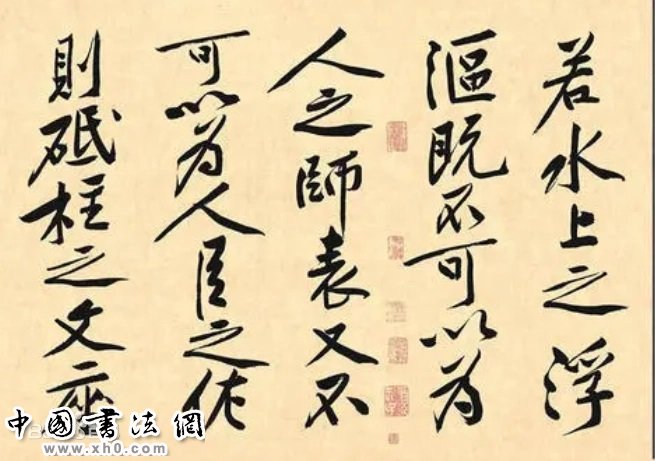 若水上之浮
漚既不可以為
人之師表又不
可以為人臣之作
則砥柱之文座
中國書法網
www.xh0.com